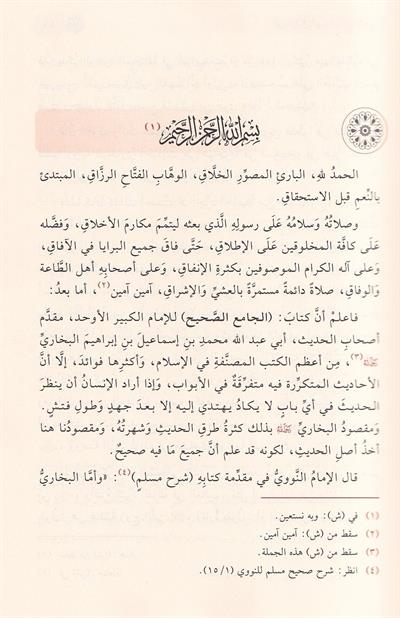 بِسْمِ اللهِ الرَّحْمٰنِ الرَّحِيْمِ (١)
الحمدُ للهِ، البارئِ المصوِّرِ الخلَّاقِ، الوهَّابِ الفتَّاحِ الرزَّاقِ، المبتدئِ
بالنِّعمِ قبلَ الاستحقاقِ.
وصلاتُهُ وَسلامُهُ عَلَى رسولِهِ الَّذي بعثه ليتمِّمَ مكارمَ الأخلاقِ، وَفضَّله
عَلَى كافَّة المخلوقين عَلَى الإطلاقِ، حَتَّى فاقَ جميع البرايا في الآفاقِ،
وَعلى آله الكرام الموصوفين بكثرةِ الإنفاقِ، وَعلى أصحابِهِ أهل الطَّاعة
وَالوفاقِ، صلاةً دائمةً مستمرَّةً بالعشيِّ وَالإشراقِ، آمين آمين(٢)، أما بعدُ:
فاعلمْ أنَّ كتابَ: (الجامع الصَّحيح) للإمام الكبير الأوحد، مقدَّم
أصحابِ الحديث، أبي عبد الله محمدِ بنِ إسماعيلَ بنِ إبراهيمَ البخاريِّ
رحمه الله(٣)، مِن أعظم الكتب المصنَّفةِ في الإسلام، وَأكثرِها فوائدَ، إلَّا أنَّ
الأحاديث المتكرِّرة فيه متفرِّقةٌ في الأبواب، وَإذا أراد الإنسانُ أن ينظرَ
الحديثَ في أيِّ بابٍ لا يكادُ يهتدي إليه إلا بعدَ جهدٍ وَطولِ فتشٍ.
وَمقصودُ البخاريِّ رحمه الله بذلك كثرةُ طرقِ الحديثِ وَشهرتُهُ، وَمقصودُنا هنا
أخذُ أصلِ الحديثِ، لكونه قد علم أنَّ جميعَ مَا فيه صحيحٌ.
قال الإمامُ النَّوويُّ في مقدِّمة كتابِهِ (شرح مسلم)(٤): «وَأمَّا البخاريُّ
(١) في (ش): وبه نستعين.
(٢) سقط من (ش): آمين آمين.
(٣) سقط من (ش) هذه الجملة.
(٤) انظر: شرح صحيح مسلم للنووي (١/ ١٥).